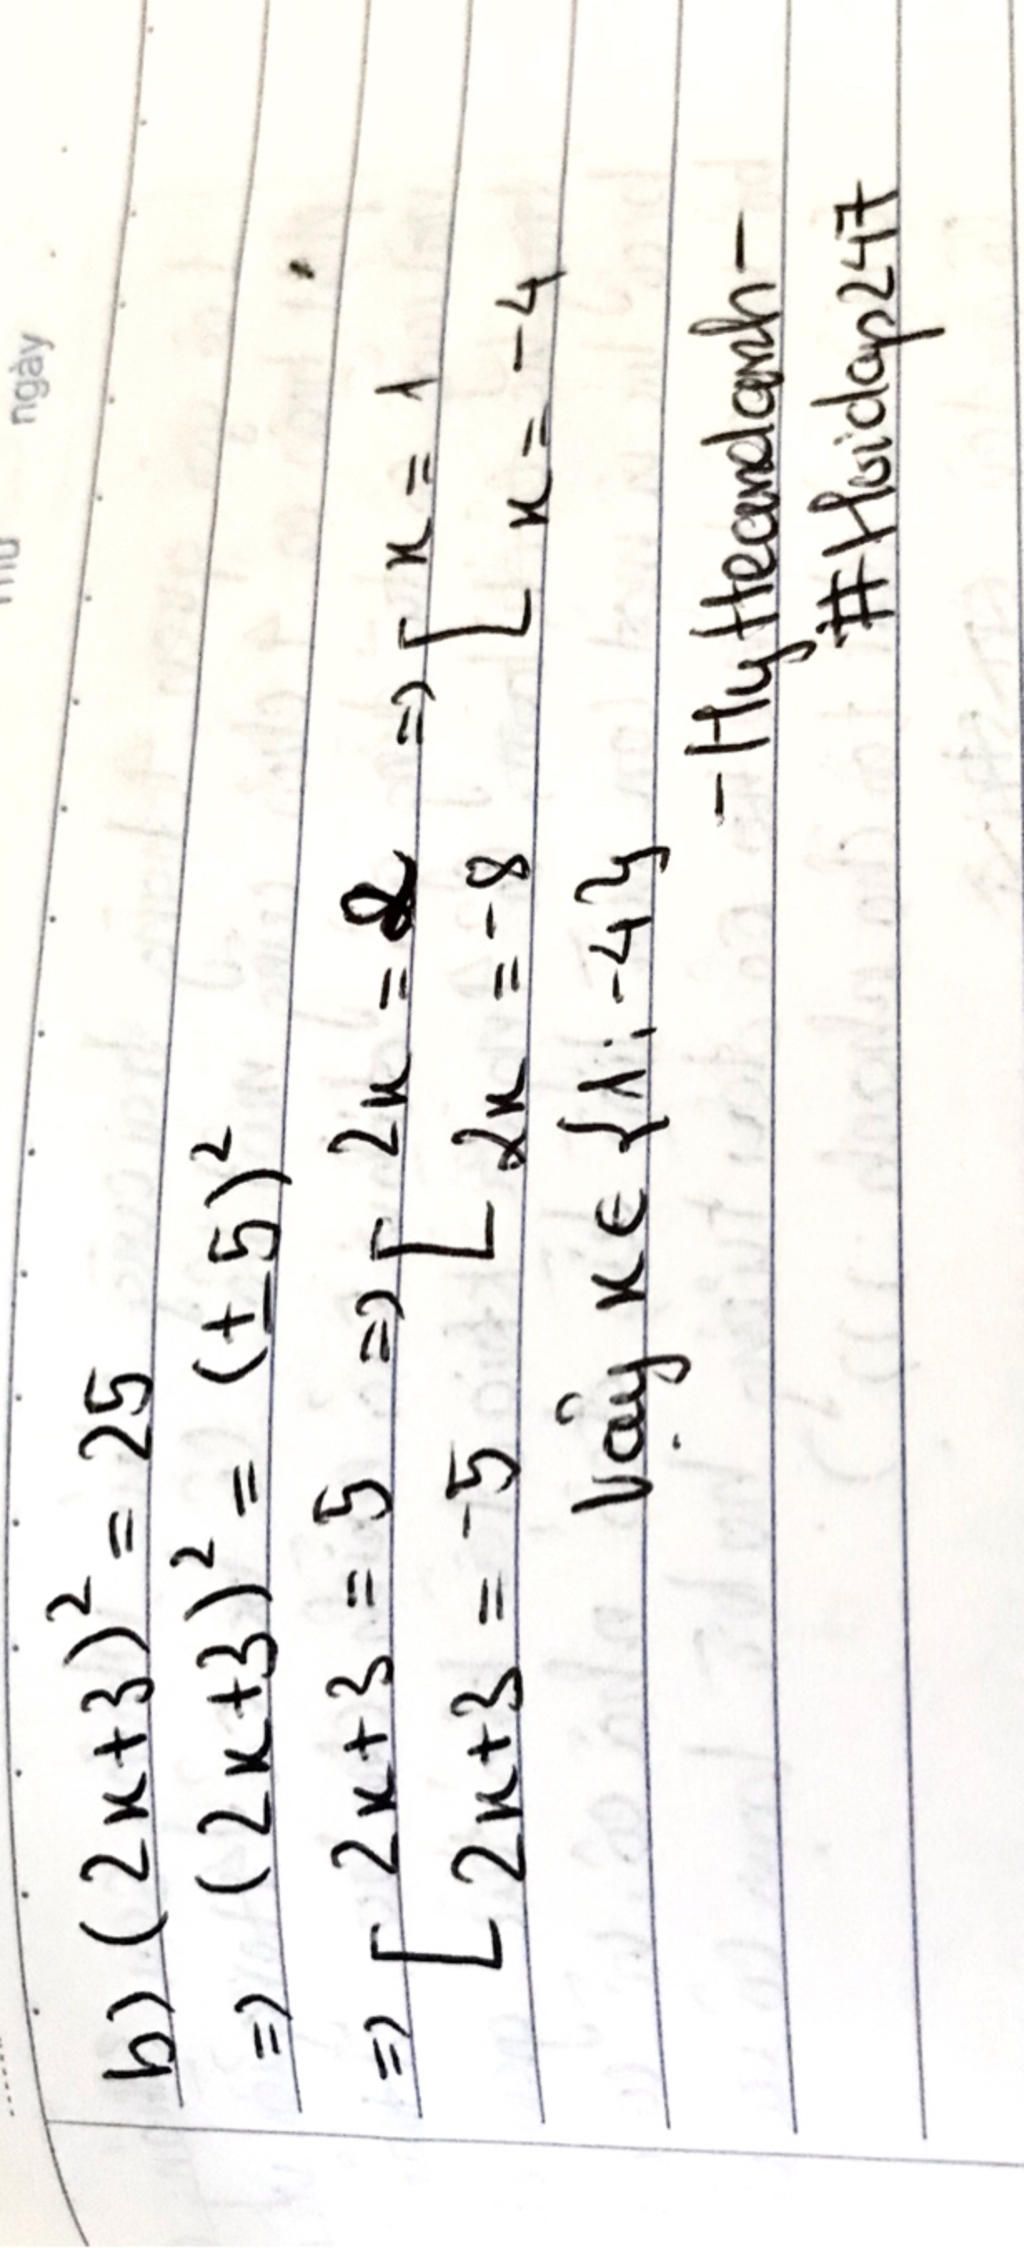 ngày
b) (2x+3)² = 25
=> (2x+3)² = (±5)²
=> [ 2x+3 = 5 => [ 2x = 2 => [ x = 1
[ 2x+3 = -5 [ 2x = -8 [ x = -4
Vậy x ∈ {1; -4}
-HyHeandanh-
#Hoidap247